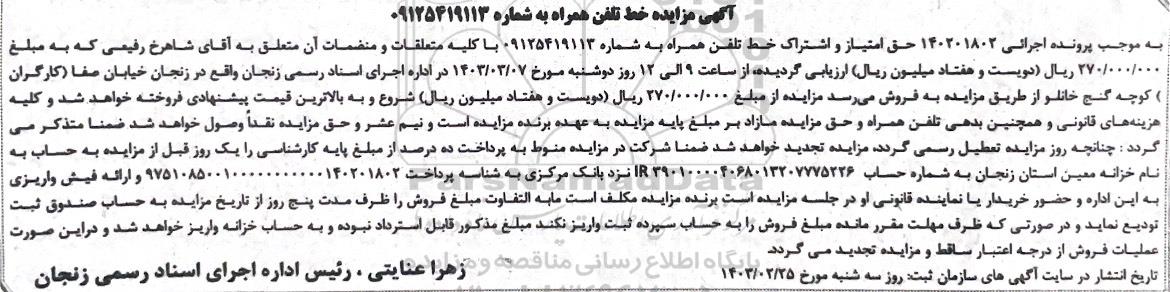 آگهی مزایده خط تلفن همراه به شماره ۰۹۱۲۵۴۱۹۱۱۳
به موجب پرونده اجرائی ۱۴۰۲۰۱۸۰۲ حق امتیاز و اشتراک خط تلفن همراه به شماره ۰۹۱۲۵۴۱۹۱۱۳ با کلیه متعلقات و منضمات آن متعلق به آقای شاهرخ رفیعی که به مبلغ
۲۷۰/۰۰۰/۰۰۰ ریال (دویست و هفتاد میلیون ریال) ارزیابی گردیده، از ساعت ۹ الی ۱۲ روز دوشنبه مورخ ۱۴۰۳/۰۳/۰۷ در اداره اجرای اسناد رسمی زنجان واقع در زنجان خیابان صفا (کارگران
) کوچه گنج خانلو از طریق مزایده به فروش می‌رسد مزایده از مبلغ ۲۷۰/۰۰۰/۰۰۰ ریال (دویست و هفتاد میلیون ریال) شروع و به بالاترین قیمت پیشنهادی فروخته خواهد شد و کلیه
هزینه‌های قانونی و همچنین بدهی تلفن همراه و حق مزایده مازاد بر مبلغ پایه مزایده به عهده برنده مزایده است و نیم عشر و حق مزایده نقداً وصول خواهد شد ضمنا متذکر می
گردد : چنانچه روز مزایده تعطیل رسمی گردد، مزایده تجدید خواهد شد ضمنا شرکت در مزایده منوط به پرداخت ده درصد از مبلغ پایه کارشناسی را یک روز قبل از مزایده به حساب به
نام خزانه معین استان زنجان به شماره حساب IR ۳۹۰۱۰۰۰۰۴۰۶۸۰۱۳۲۰۷۷۷۵۲۲۶ نزد بانک مرکزی به شناسه پرداخت ۹۷۵۱۰۸۵۰۰۱۰۰۰۰۰۰۰۰۰۰۰۱۴۰۲۰۱۸۰۲ و ارائه فیش واریزی
به این اداره و حضور خریدار یا نماینده قانونی او در جلسه مزایده است برنده مزایده مکلف است مابه التفاوت مبلغ فروش را ظرف مدت پنج روز از تاریخ مزایده به حساب صندوق ثبت
تودیع نماید و در صورتی که ظرف مهلت مقرر مانده مبلغ فروش را به حساب سپرده ثبت واریز نکند مبلغ مذکور قابل استرداد نبوده و به حساب خزانه واریز خواهد شد و دراین صورت
عملیات فروش از درجه اعتبار ساقط و مزایده تجدید می گردد.
تاریخ انتشار در سایت آگهی های سازمان ثبت: روز سه شنبه مورخ ۱۴۰۳/۰۲/۲۵
زهرا عنایتی ، رئیس اداره اجرای اسناد رسمی زنجان
ParsNamadData
پایگاه اطلاع رسانی مناقصه و مزایده